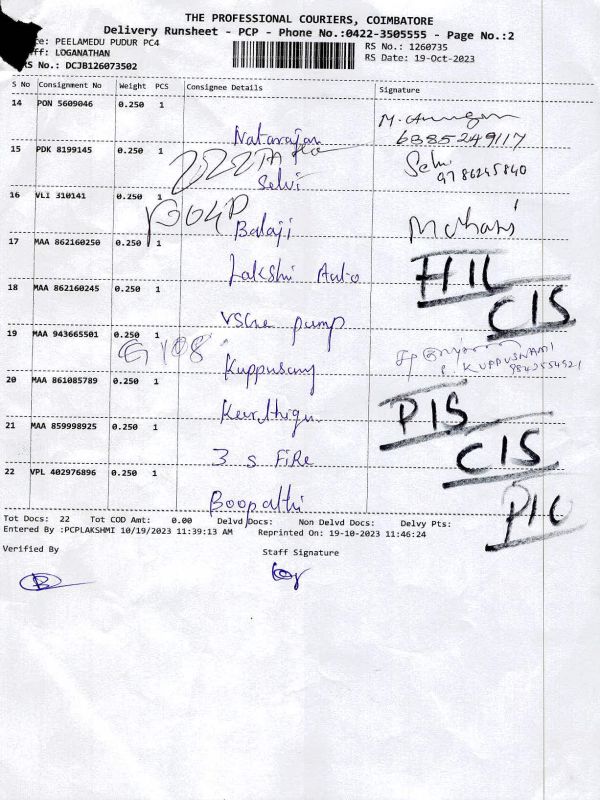 THE PROFESSIONAL COURIERS, COIMBATORE
Delivery Runsheet - PCP - Phone No.:0422-3505555 - Page No.:2
ce: PEELAMEDU PUDUR PC4 RS No.: 1260735
ff: LOGANATHAN RS Date: 19-Oct-2023
RS No.: DCJB126073502
S No Consignment No Weight PCS Consignee Details Signature
14 PON 5609046 0.250 1 Natarajan 6385249117
15 PDK 8199145 0.250 1 Selvi 9786245840
16 VLI 310141 0.250 1 Balaji
17 MAA 862160250 0.250 1 Lakshmi Auto
18 MAA 862160245 0.250 1 pump CIS
19 MAA 943665501 0.250 1 G 108 Kuppusamy KUPPUSWAMI 9842554921
20 MAA 861085789 0.250 1 PIS
21 MAA 859998925 0.250 1 3 S FiRe CIS
22 VPL 402976896 0.250 1 Boopathi
Tot Docs: 22 Tot COD Amt: 0.00 Delvd Docs: Non Delvd Docs: Delvy Pts:
Entered By :PCPLAKSHMI 10/19/2023 11:39:13 AM Reprinted On: 19-10-2023 11:46:24
Verified By Staff Signature